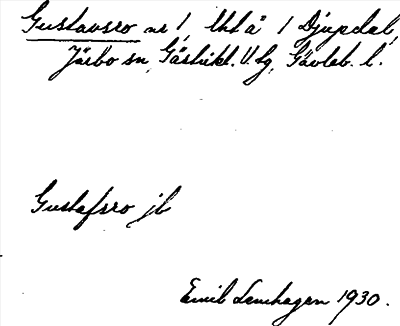 Gustavsro nr 1, Utb å 1 Djupdal,
Järbo sn, Gästrikl. V. tg, Gävleb. l.
Gustafsro jb
Emil Lenhagen 1930.